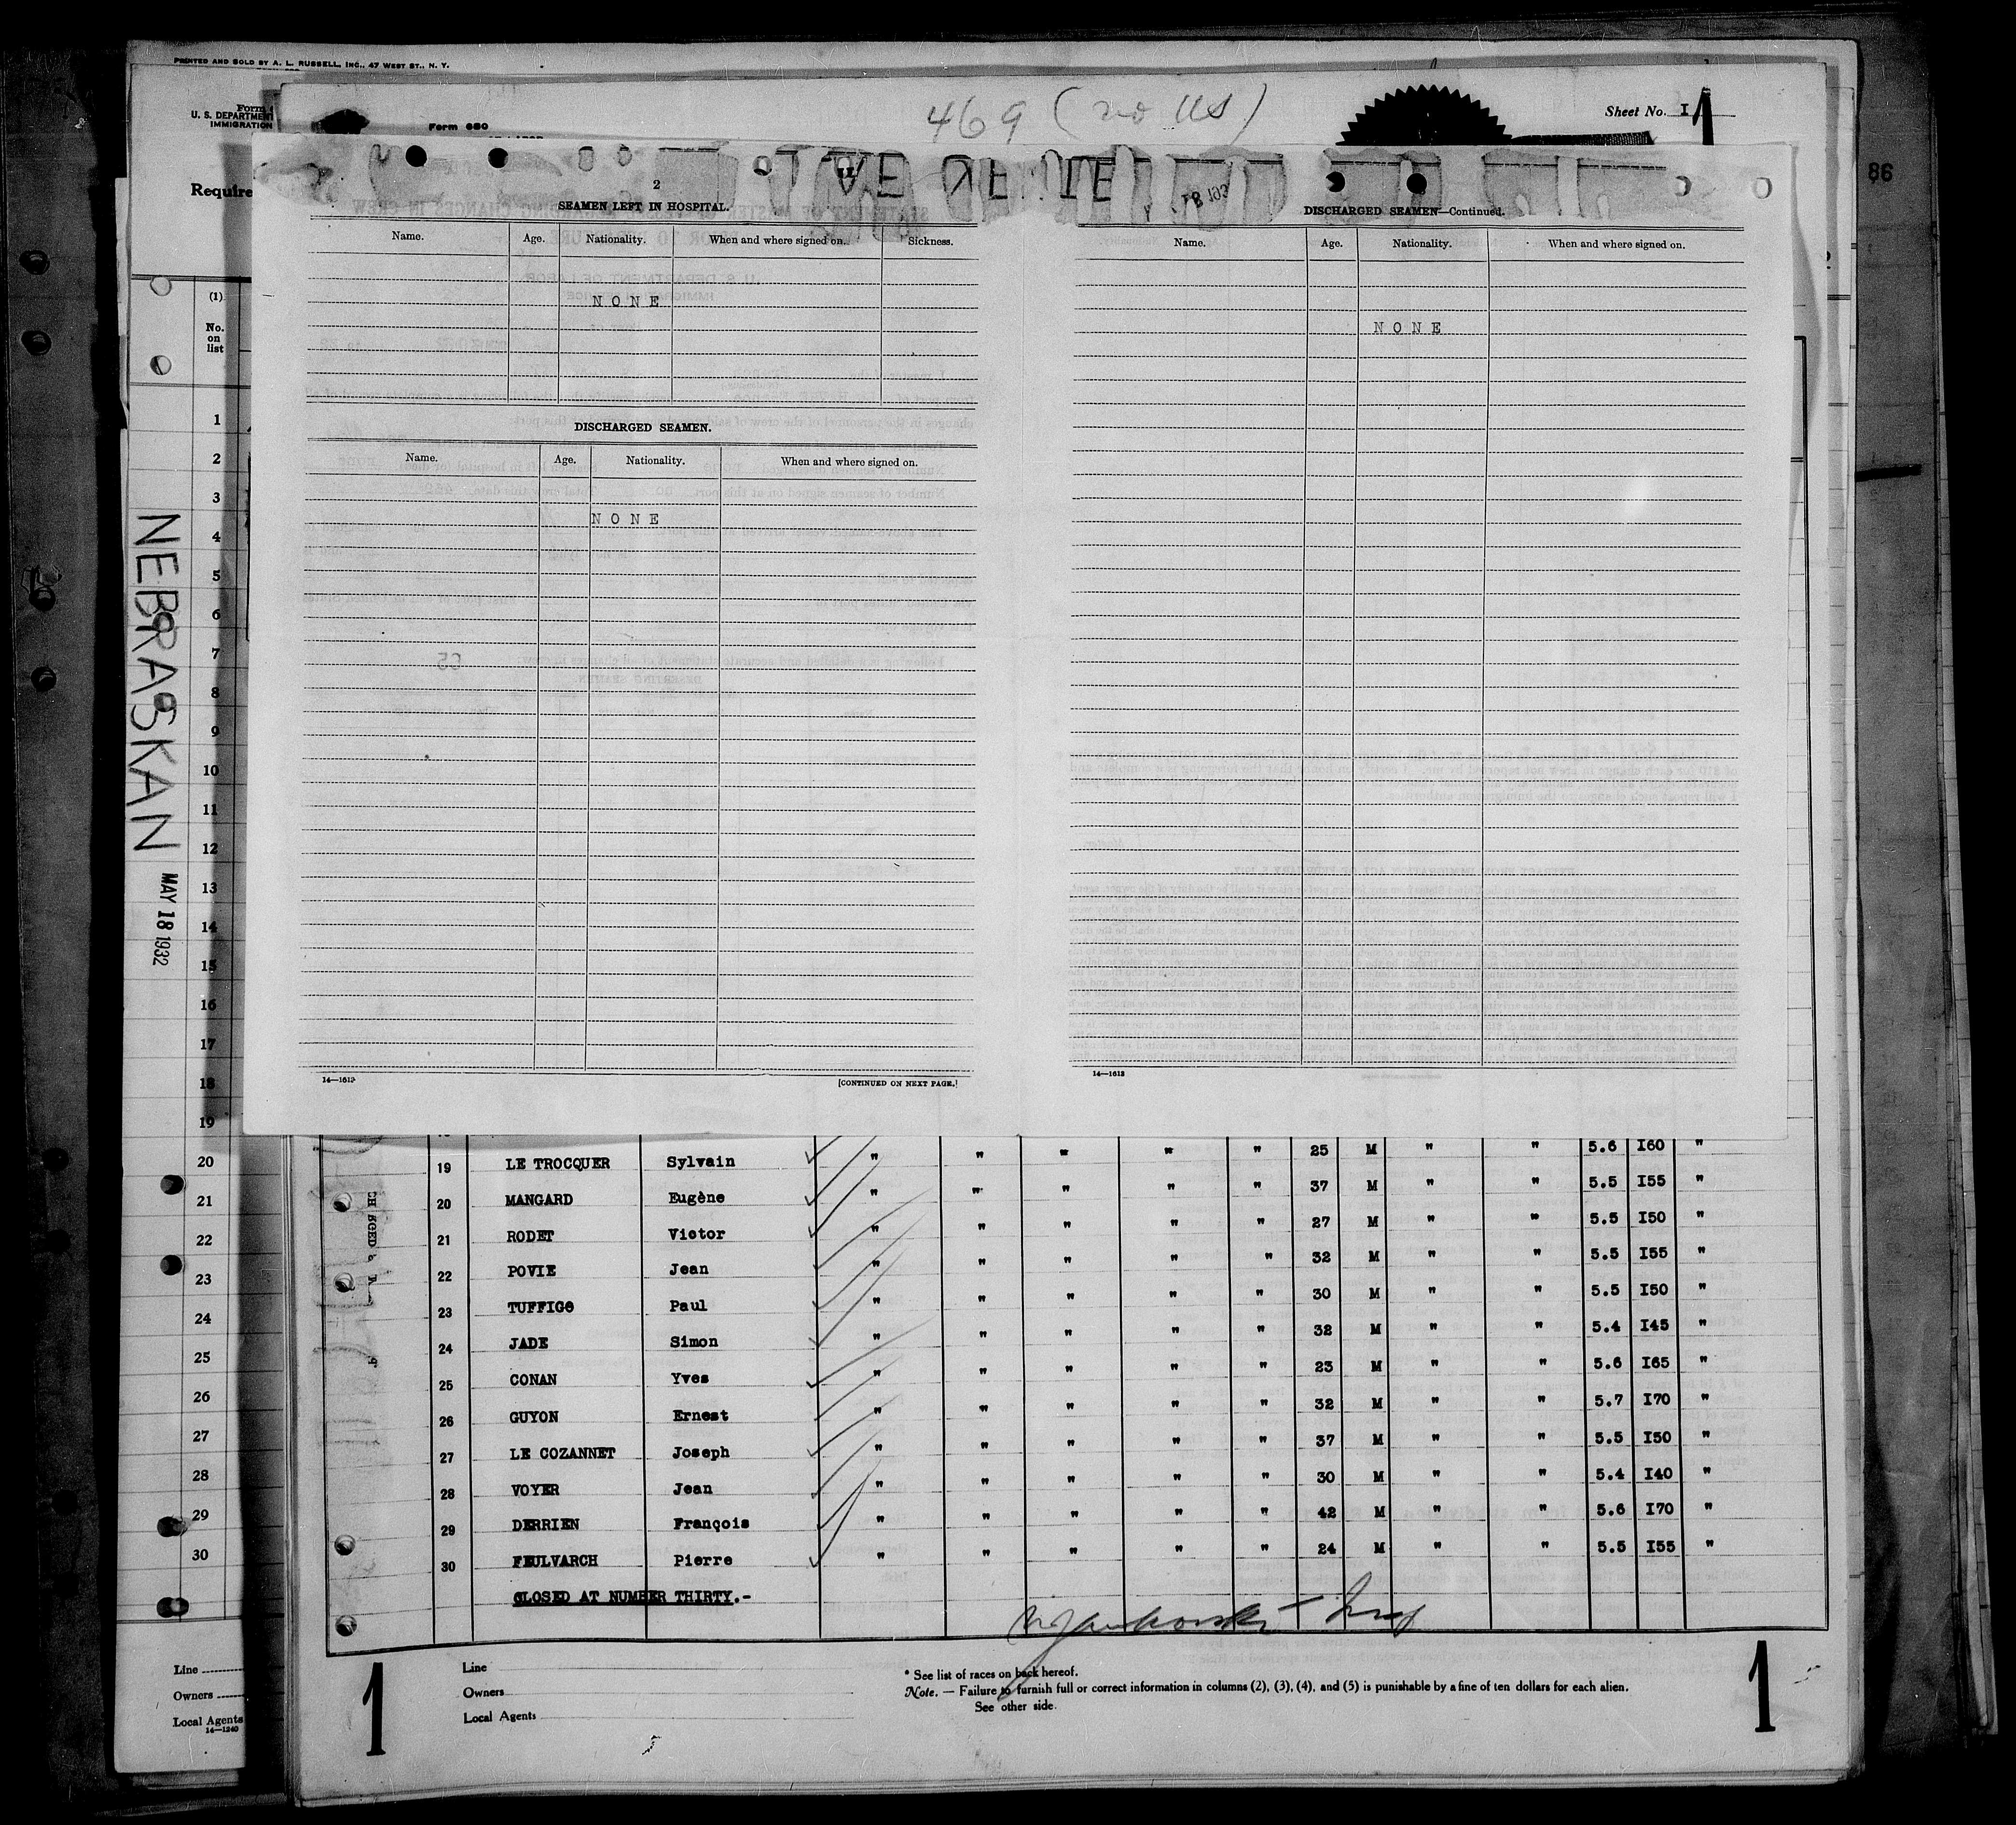 PRINTED AND SOLD BY A. L. RUSSELL, INC., 47 WEST ST., N. Y.
Form
U. S. DEPARTMENT
IMMIGRATION
Form 680
469 (no US)
Sheet No. I
1
86
Require
2
SEAMEN LEFT IN HOSPITAL.
Name. Age. Nationality. When and where signed on. Sickness.
NONE
DISCHARGED SEAMEN.
Name. Age. Nationality. When and where signed on.
NONE
14—1613 [CONTINUED ON NEXT PAGE.]
DISCHARGED SEAMEN—Continued.
Name. Age. Nationality. When and where signed on.
NONE
14—1613
(1)
No.
on
list
1
2
3
4
5
6
7
8
9
10
11
12
13
14
15
16
17
18
19
20
21
22
23
24
25
26
27
28
29
30
NEBRASKAN
MAY 18 1932
Line
Owners
Local Agents
14—1240
19 LE TROCQUER Sylvain " " " " " 25 M " " 5.6 I60 "
20 MANGARD Eugène " " " " " 37 M " " 5.5 I55 "
21 RODET Victor " " " " " 27 M " " 5.5 I50 "
22 POVIE Jean " " " " " 32 M " " 5.5 I55 "
23 TUFFIGO Paul " " " " " 30 M " " 5.5 I50 "
24 JADE Simon " " " " " 32 M " " 5.4 I45 "
25 CONAN Yves " " " " " 23 M " " 5.6 I65 "
26 GUYON Ernest " " " " " 32 M " " 5.7 I70 "
27 LE COZANNET Joseph " " " " " 37 M " " 5.5 I50 "
28 VOYER Jean " " " " " 30 M " " 5.4 I40 "
29 DERRIEN François " " " " " 42 M " " 5.6 I70 "
30 FEULVARCH Pierre " " " " " 24 M " " 5.5 I55 "
CLOSED AT NUMBER THIRTY.-
1
Line
Owners
Local Agents
* See list of races on back hereof.
Note. — Failure to furnish full or correct information in columns (2), (3), (4), and (5) is punishable by a fine of ten dollars for each alien.
See other side.
1